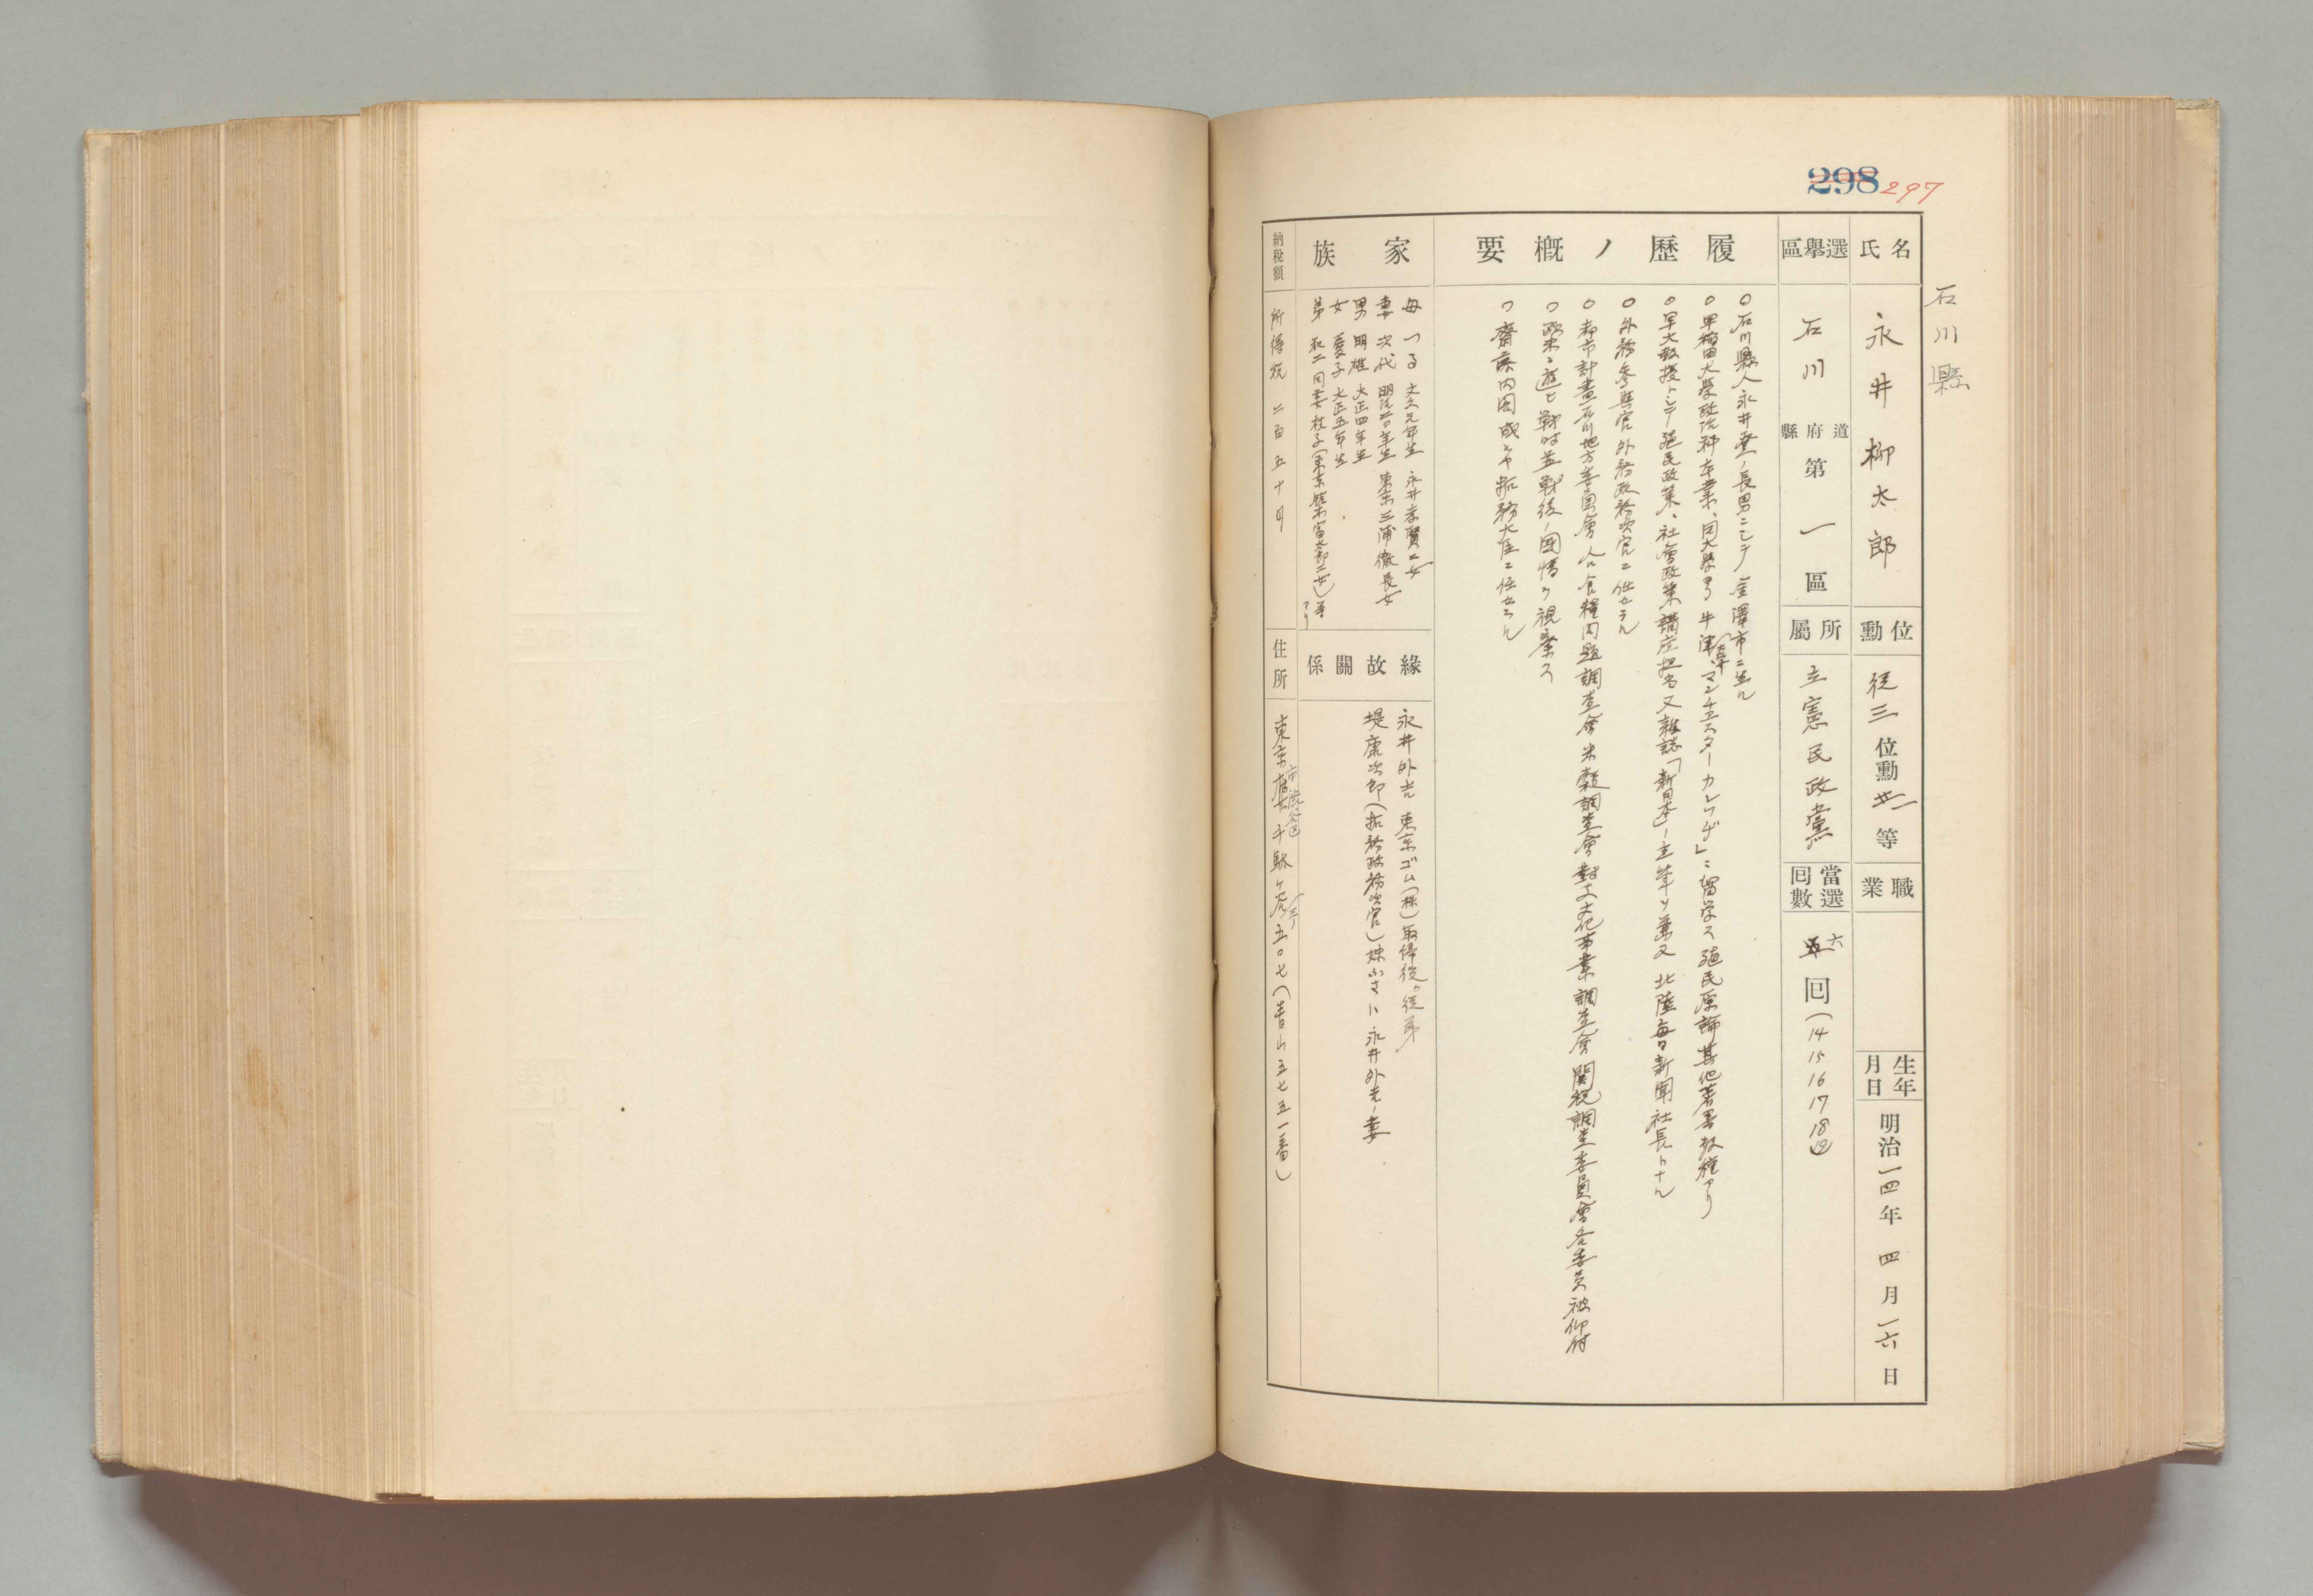 298 297
石川縣
氏名
永井柳太郎
位勳
從三位勳等
職業
生年月日
明治一四年四月一六日
選擧區
石川道府縣第一區
所屬
立憲民政黨
當選回數
五六回(14 15 16 17 18
履歷ノ槪要
○石川縣人永井登ノ長男ニシテ金澤市ニ生ル
○早稲田大學政治科卒業、同大學ヨリ牛津、マンチエスターカレツヂ」ニ留学ス 殖民原論其他著書数種アリ
○早大敎授トシテ殖民政策、社會政策講座担当又雜誌「新日本」ノ主筆ヲ兼又 北陸每日新聞社長トナル
○外務參與官外務政務次官ニ任セラル
○都市計畫石川地方委員會 人口食糧問題調査會 米穀調査會 對支文化事業調査會 関税調査委員會各委員被仰付
○欧米ニ遊ヒ戰時並戰後ノ國情ヲ視察ス
○齋藤内閣成ルヤ拓務大臣ニ任セラル
家族
母 つる 文久元年生 永井孝賢二女
妻 次代 明治二〇年生 東京三浦徹長女
男 明雄 大正四年生
女 愛子 大正五年生
弟 和二 同妻枝子(東京富太郎二女)等アリ
緣故關係
永井外吉 東京ゴム(株)取締役ハ從弟
堤康次郎(拓務政務次官)妹ふさハ永井外吉ノ妻
納稅額
所得税 二百五十円
住所
東京市渋谷区千駄ヶ谷五〇七(青山五七五一番)